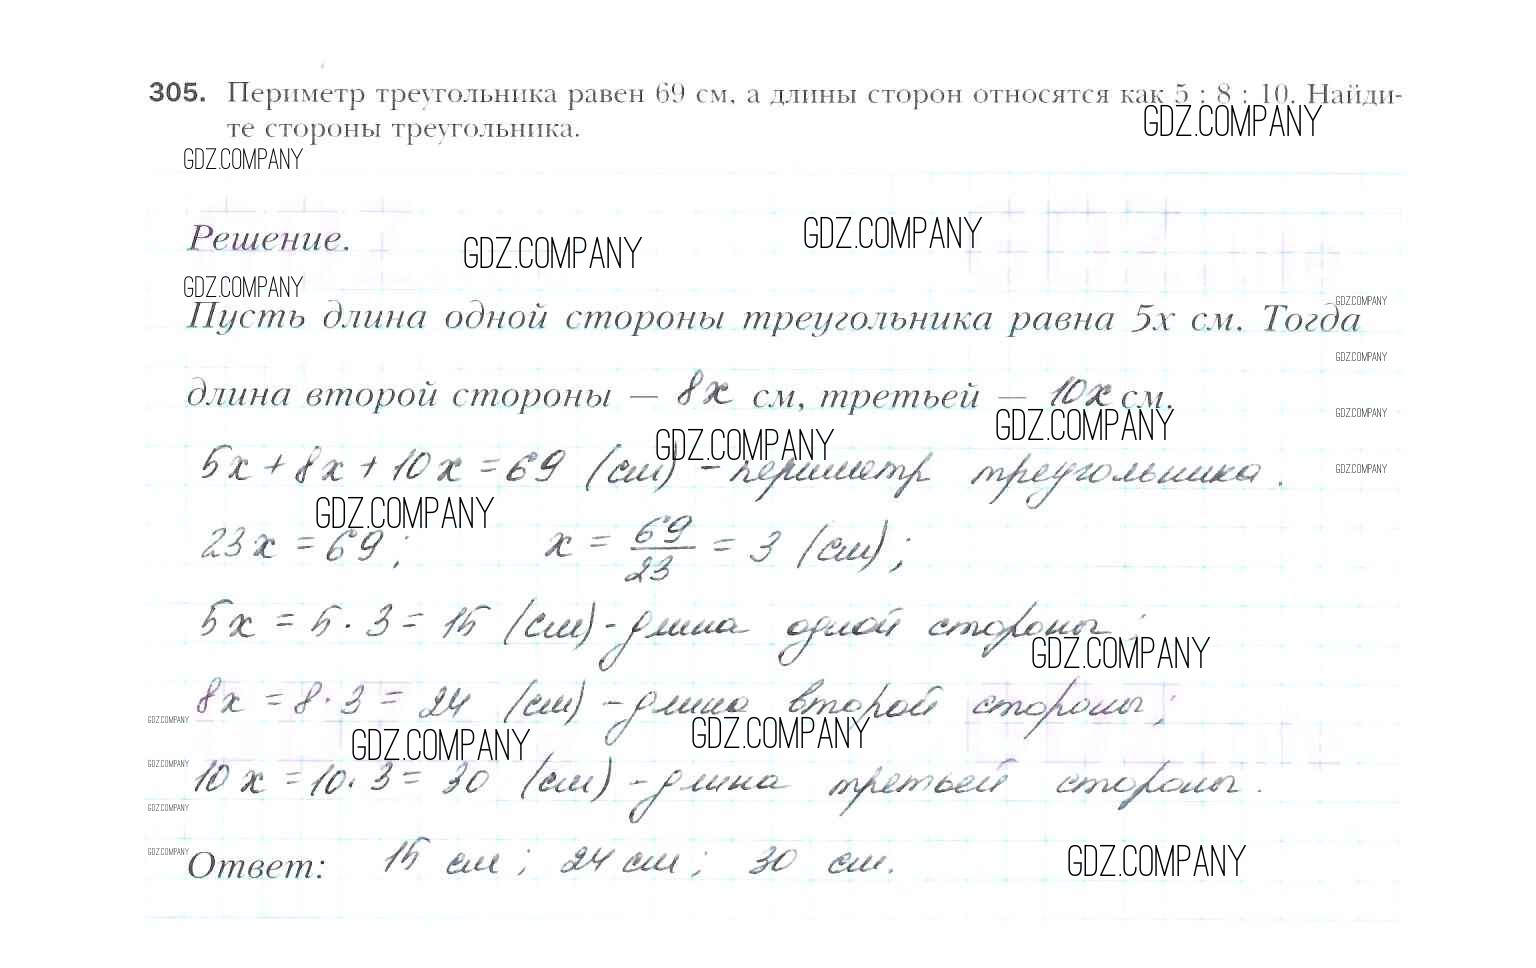 305. Периметр треугольника равен 69 см, а длины сторон относятся как 5 : 8 : 10. Найди-
GDZ.COMPANY
те стороны треугольника.
GDZ.COMPANY
GDZ.COMPANY
Решение.
GDZ.COMPANY
GDZ.COMPANY
GDZ.COMPANY
Пусть длина одной стороны треугольника равна 5x см. Тогда
GDZ.COMPANY
длина второй стороны – 8x см, третьей – 10x см.
GDZ.COMPANY
GDZ.COMPANY
GDZ.COMPANY
5x + 8x + 10x = 69 (см) - периметр треугольника.
GDZ.COMPANY
GDZ.COMPANY
23x = 69; x = 69/23 = 3 (см);
5x = 5 · 3 = 15 (см) - длина одной стороны;
GDZ.COMPANY
8x = 8 · 3 = 24 (см) - длина второй стороны;
GDZ.COMPANY
GDZ.COMPANY
GDZ.COMPANY
GDZ.COMPANY
10x = 10 · 3 = 30 (см) - длина третьей стороны.
GDZ.COMPANY
GDZ.COMPANY
Ответ: 15 см; 24 см; 30 см.
GDZ.COMPANY